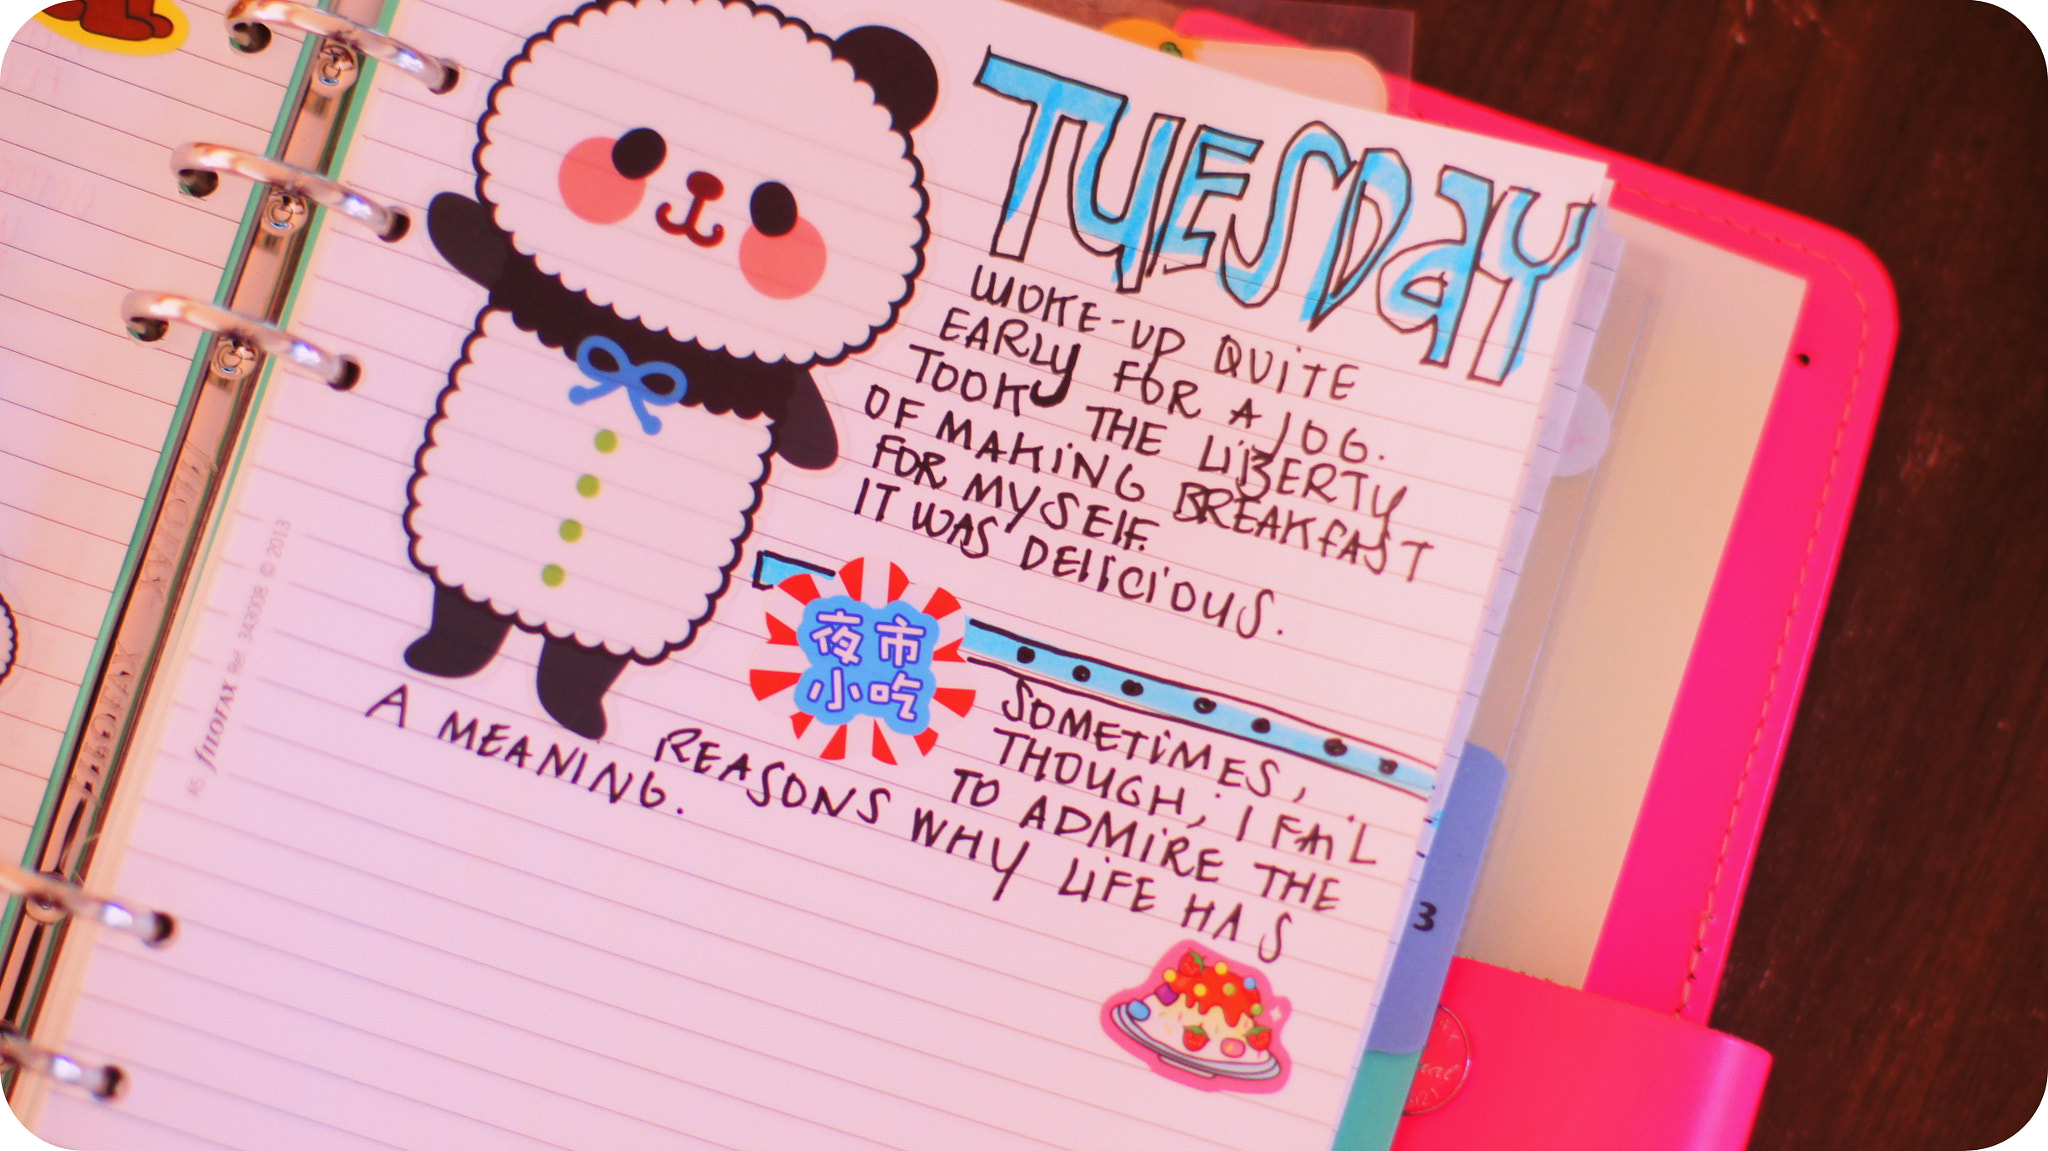 TUESDAY
WOKE-UP QUITE
EARLY FOR A JOG.
TOOK THE LIBERTY
OF MAKING BREAKFAST
FOR MYSELF.
IT WAS DELICIOUS.
夜市
小吃
SOMETIMES,
THOUGH, I FAIL
TO ADMIRE THE
REASONS WHY LIFE HAS
A MEANING.
3
A5 FILOFAX Ref. 343008 © 2013
FILOFAX